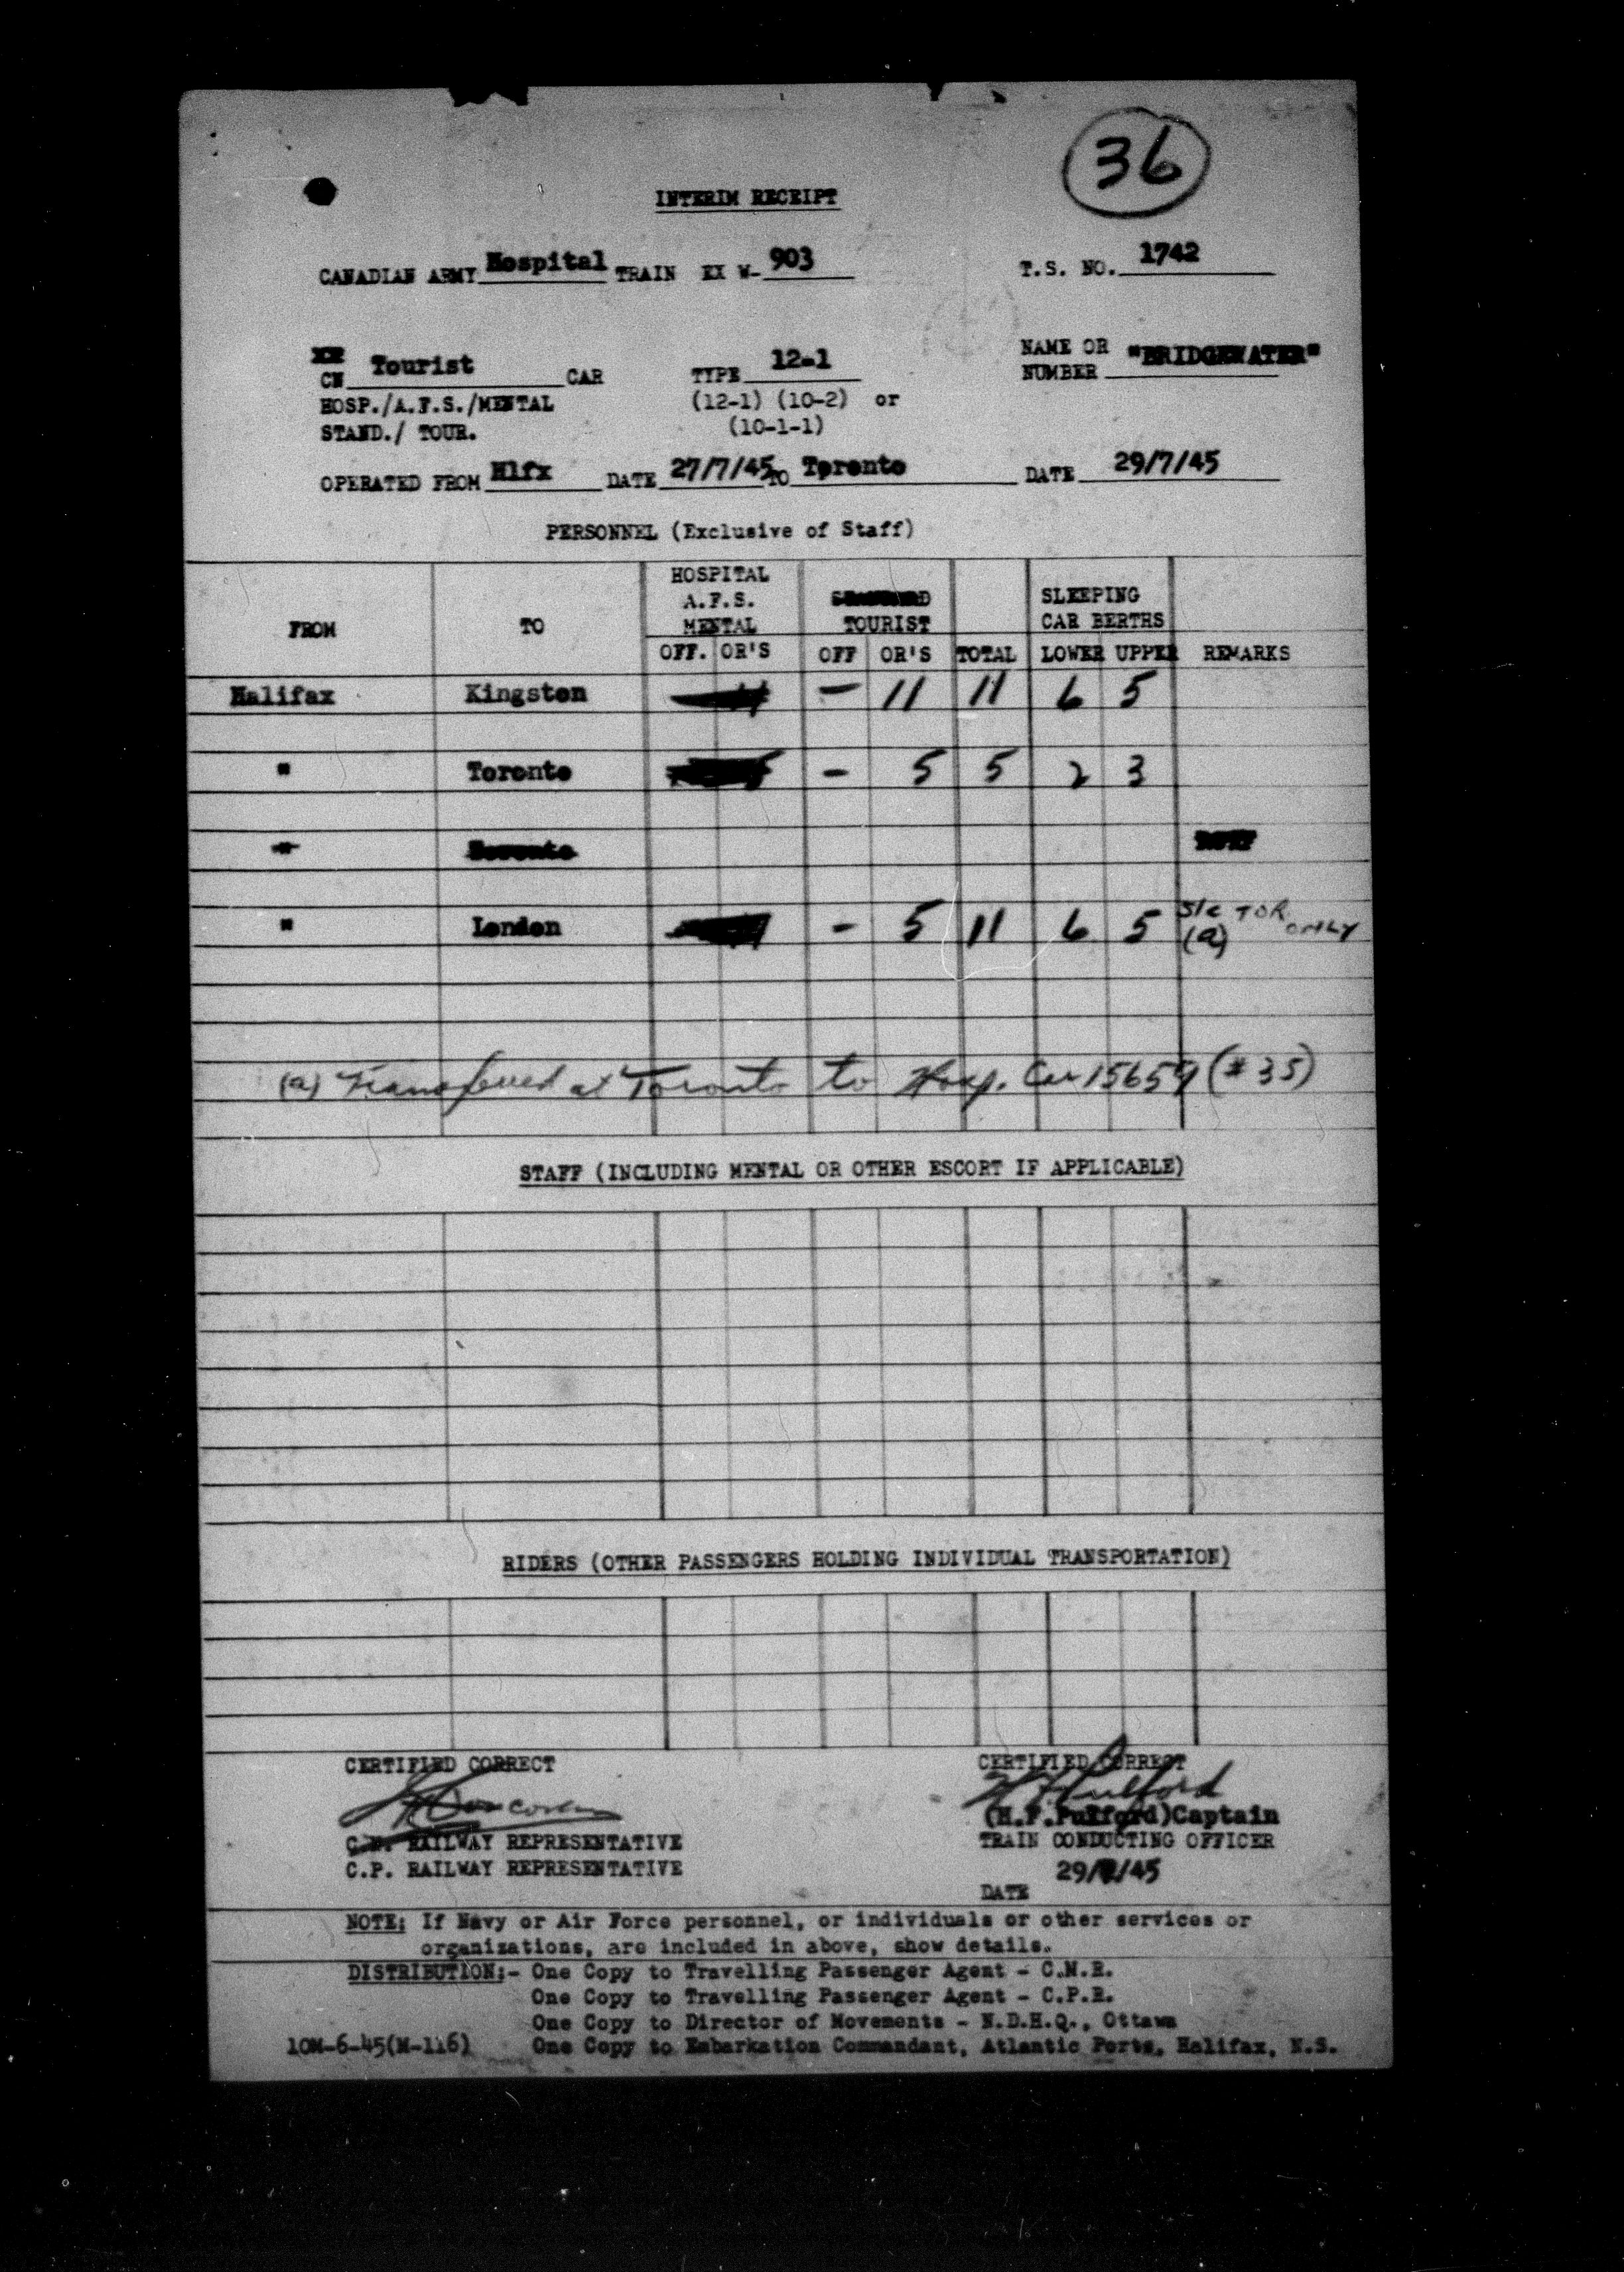 36
INTERIM RECEIPT
CANADIAN ARMY Hospital TRAIN EX W- 903 T.S. NO. 1742
CN Tourist CAR TYPE 12-1 NAME OR NUMBER "BRIDGEWATER"
HOSP./A.F.S./MENTAL (12-1) (10-2) or
STAND./ TOUR. (10-1-1)
OPERATED FROM Hlfx DATE 27/7/45 TO Toronto DATE 29/7/45
PERSONNEL (Exclusive of Staff)
FROM TO HOSPITAL A.F.S. MENTAL STANDARD TOURIST SLEEPING CAR BERTHS
OFF. OR'S OFF OR'S TOTAL LOWER UPPER REMARKS
Halifax Kingston - 11 11 6 5
" Toronto - 5 5 2 3
" Toronto
" London - 5 11 6 5 S/c TOR ONLY (a)
(a) Transferred at Toronto to Hosp. Car 15659 (#35)
STAFF (INCLUDING MENTAL OR OTHER ESCORT IF APPLICABLE)
RIDERS (OTHER PASSENGERS HOLDING INDIVIDUAL TRANSPORTATION)
CERTIFIED CORRECT CERTIFIED CORRECT
H F Pulford
(H.F.Pulford)Captain
C.N. RAILWAY REPRESENTATIVE TRAIN CONDUCTING OFFICER
C.P. RAILWAY REPRESENTATIVE 29/7/45
DATE
NOTE: If Navy or Air Force personnel, or individuals or other services or
organizations, are included in above, show details.
DISTRIBUTION:- One Copy to Travelling Passenger Agent - C.N.R.
One Copy to Travelling Passenger Agent - C.P.R.
One Copy to Director of Movements - N.D.H.Q., Ottawa
10M-6-45(M-116) One Copy to Embarkation Commandant, Atlantic Ports, Halifax, N.S.